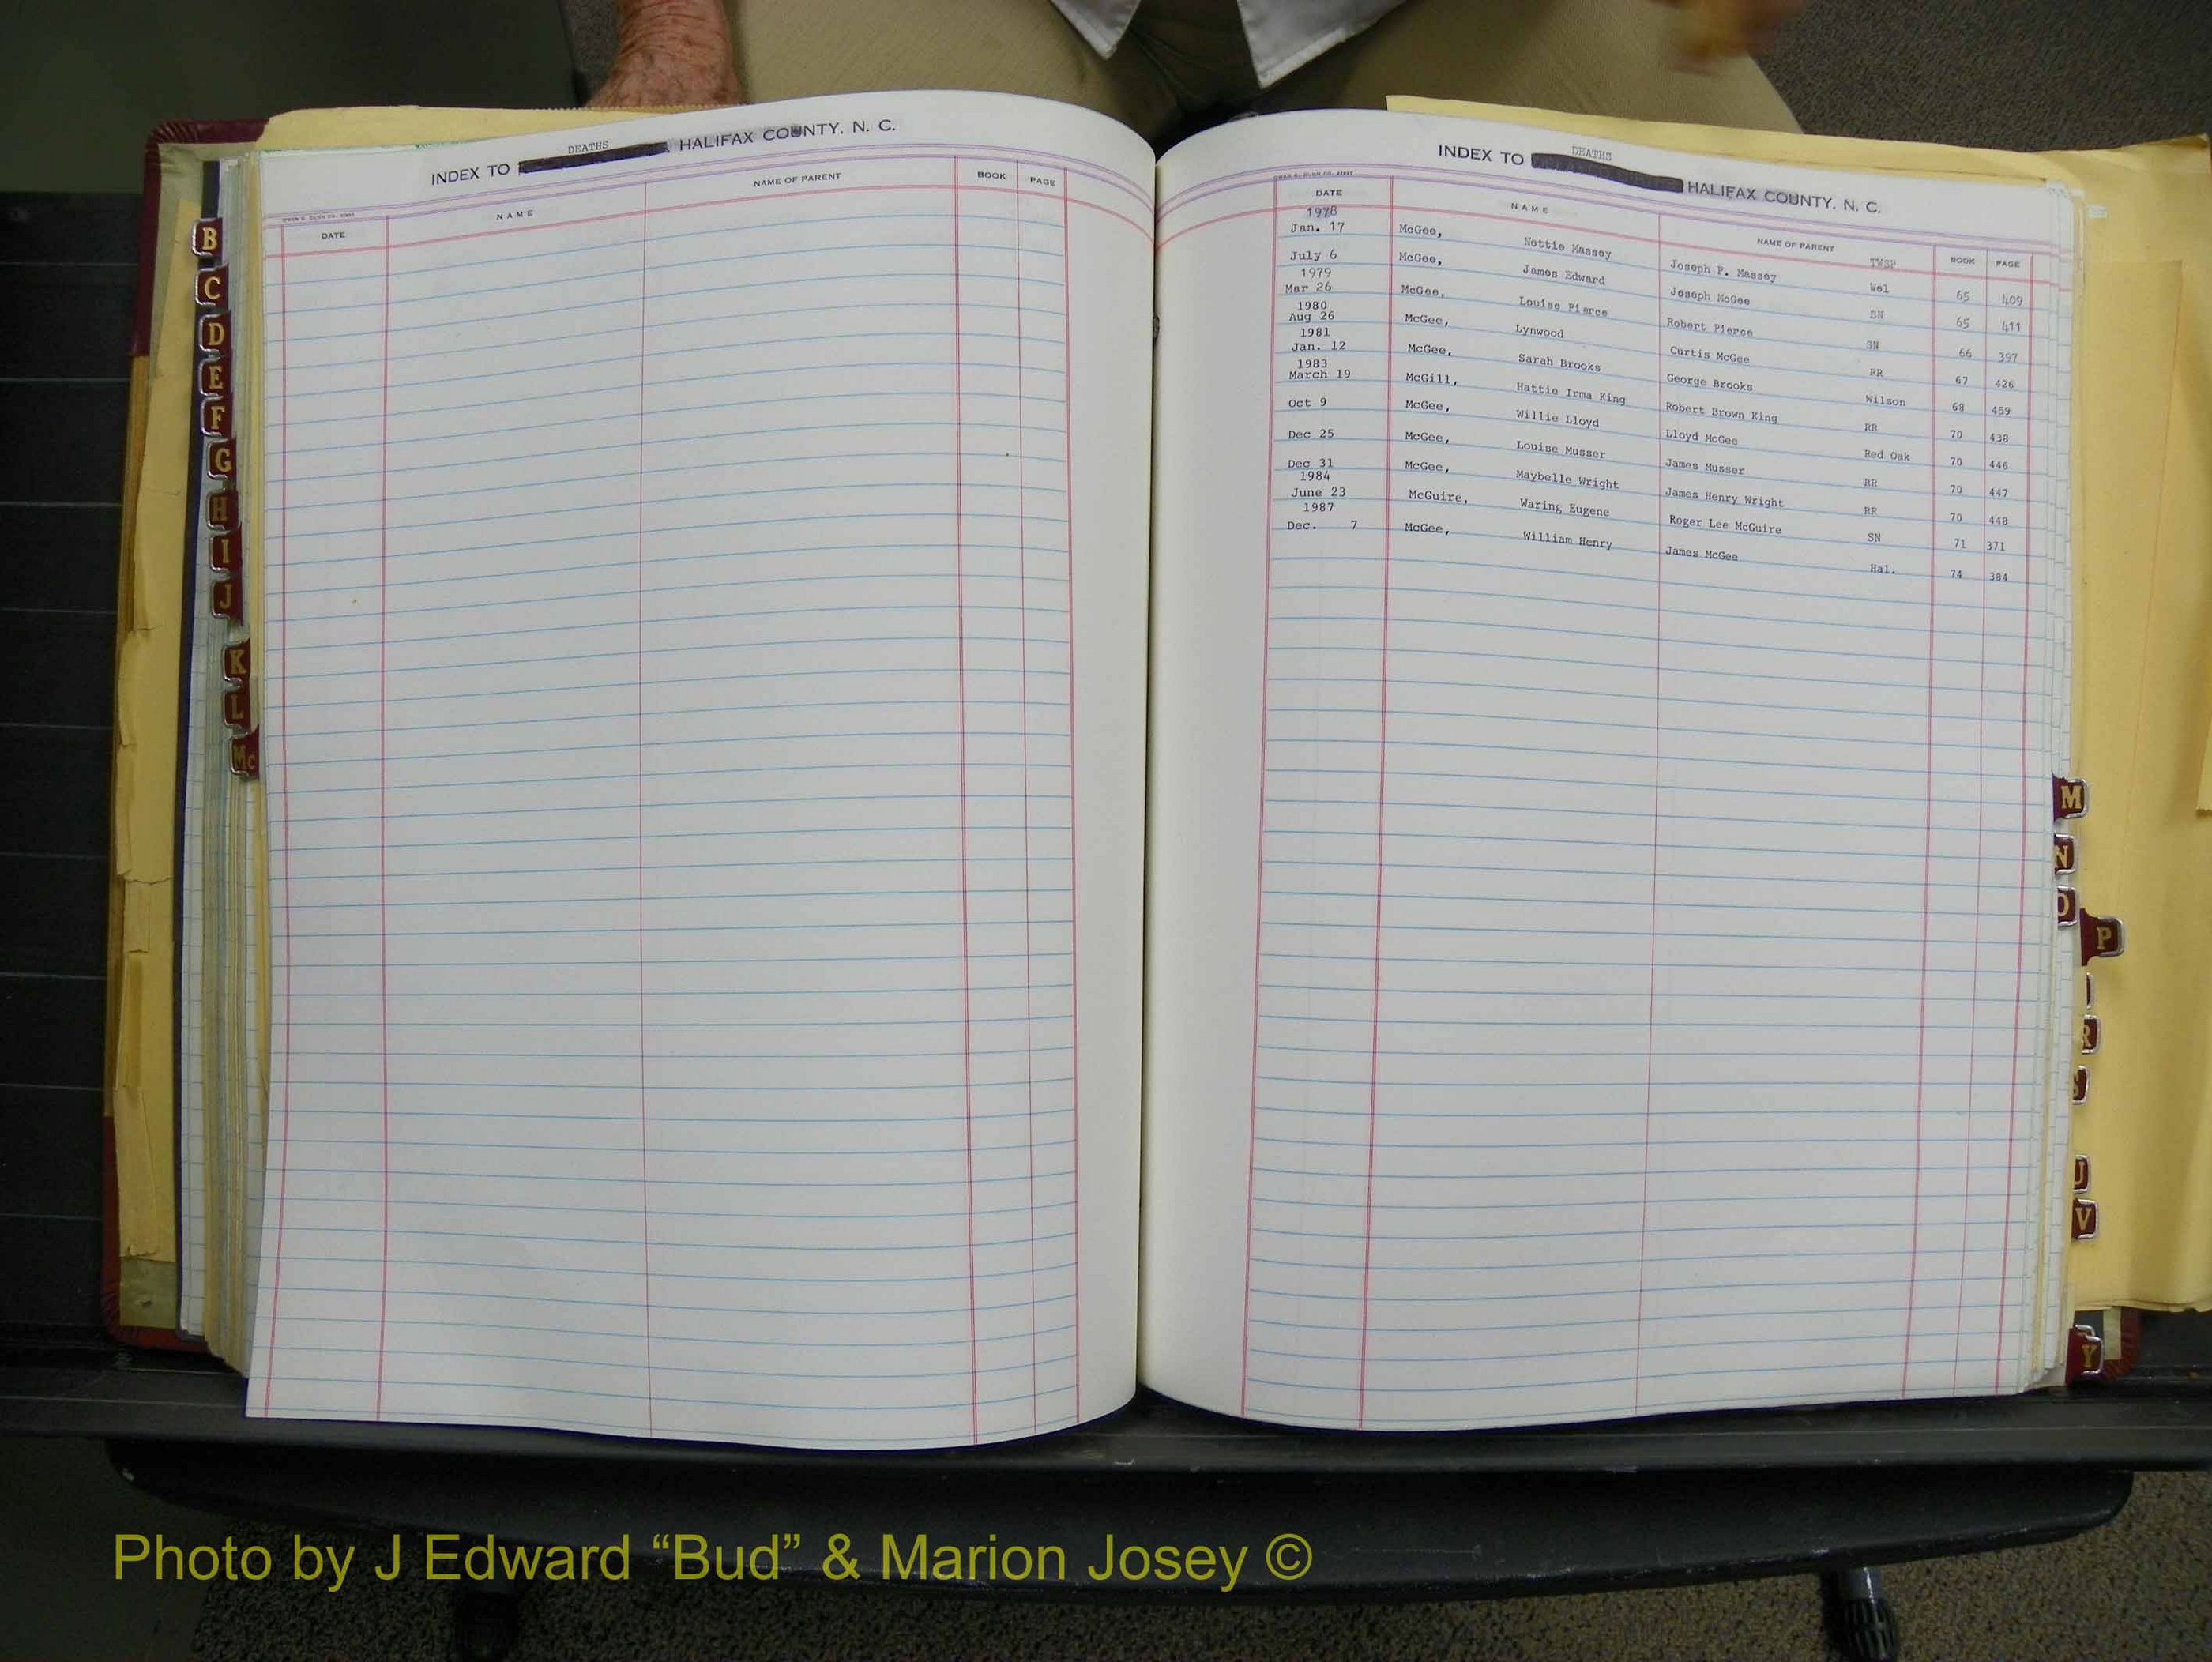 DEATHS
INDEX TO HALIFAX COUNTY. N. C.
DATE NAME NAME OF PARENT BOOK PAGE
B
C
D
E
F
G
H
I
J
K
L
Mc
DEATHS
INDEX TO HALIFAX COUNTY. N. C.
DATE NAME NAME OF PARENT TWSP BOOK PAGE
1978
Jan. 17 McGee, Nettie Massey Joseph P. Massey Wel 65 409
July 6 McGee, James Edward Joseph McGee SN 65 411
1979
Mar 26 McGee, Louise Pierce Robert Pierce SN 66 397
1980
Aug 26 McGee, Lynwood Curtis McGee RR 67 426
1981
Jan. 12 McGee, Sarah Brooks George Brooks Wilson 68 459
1983
March 19 McGill, Hattie Irma King Robert Brown King RR 70 438
Oct 9 McGee, Willie Lloyd Lloyd McGee Red Oak 70 446
Dec 25 McGee, Louise Musser James Musser RR 70 447
Dec 31 McGee, Maybelle Wright James Henry Wright RR 70 448
1984
June 23 McGuire, Waring Eugene Roger Lee McGuire SN 71 371
1987
Dec. 7 McGee, William Henry James McGee Hal. 74 384
M
N
O
P
R
S
U
V
Y
Photo by J Edward “Bud” & Marion Josey ©